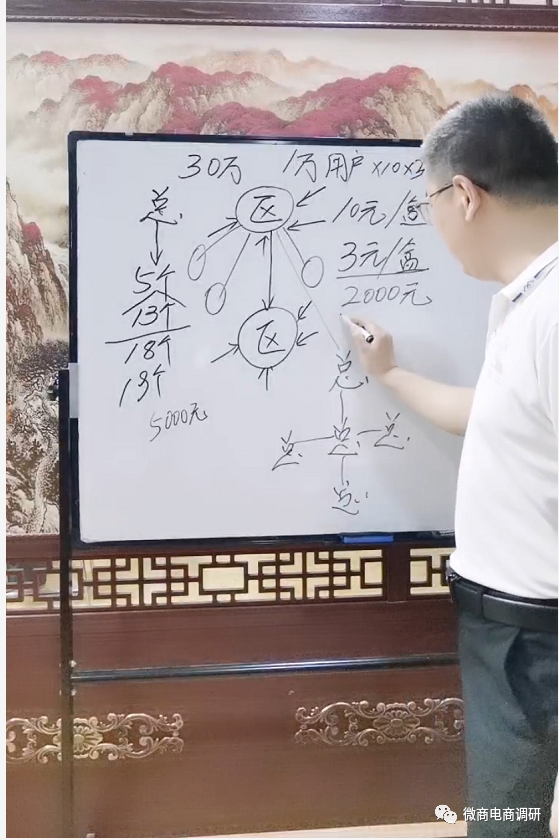 30万 1万用户 ×10×3
总
5个
13个
18个
13个
5000元
区
区
10元/盒
3元/盒
2000元
总
总 总 总
总
微商电商调研